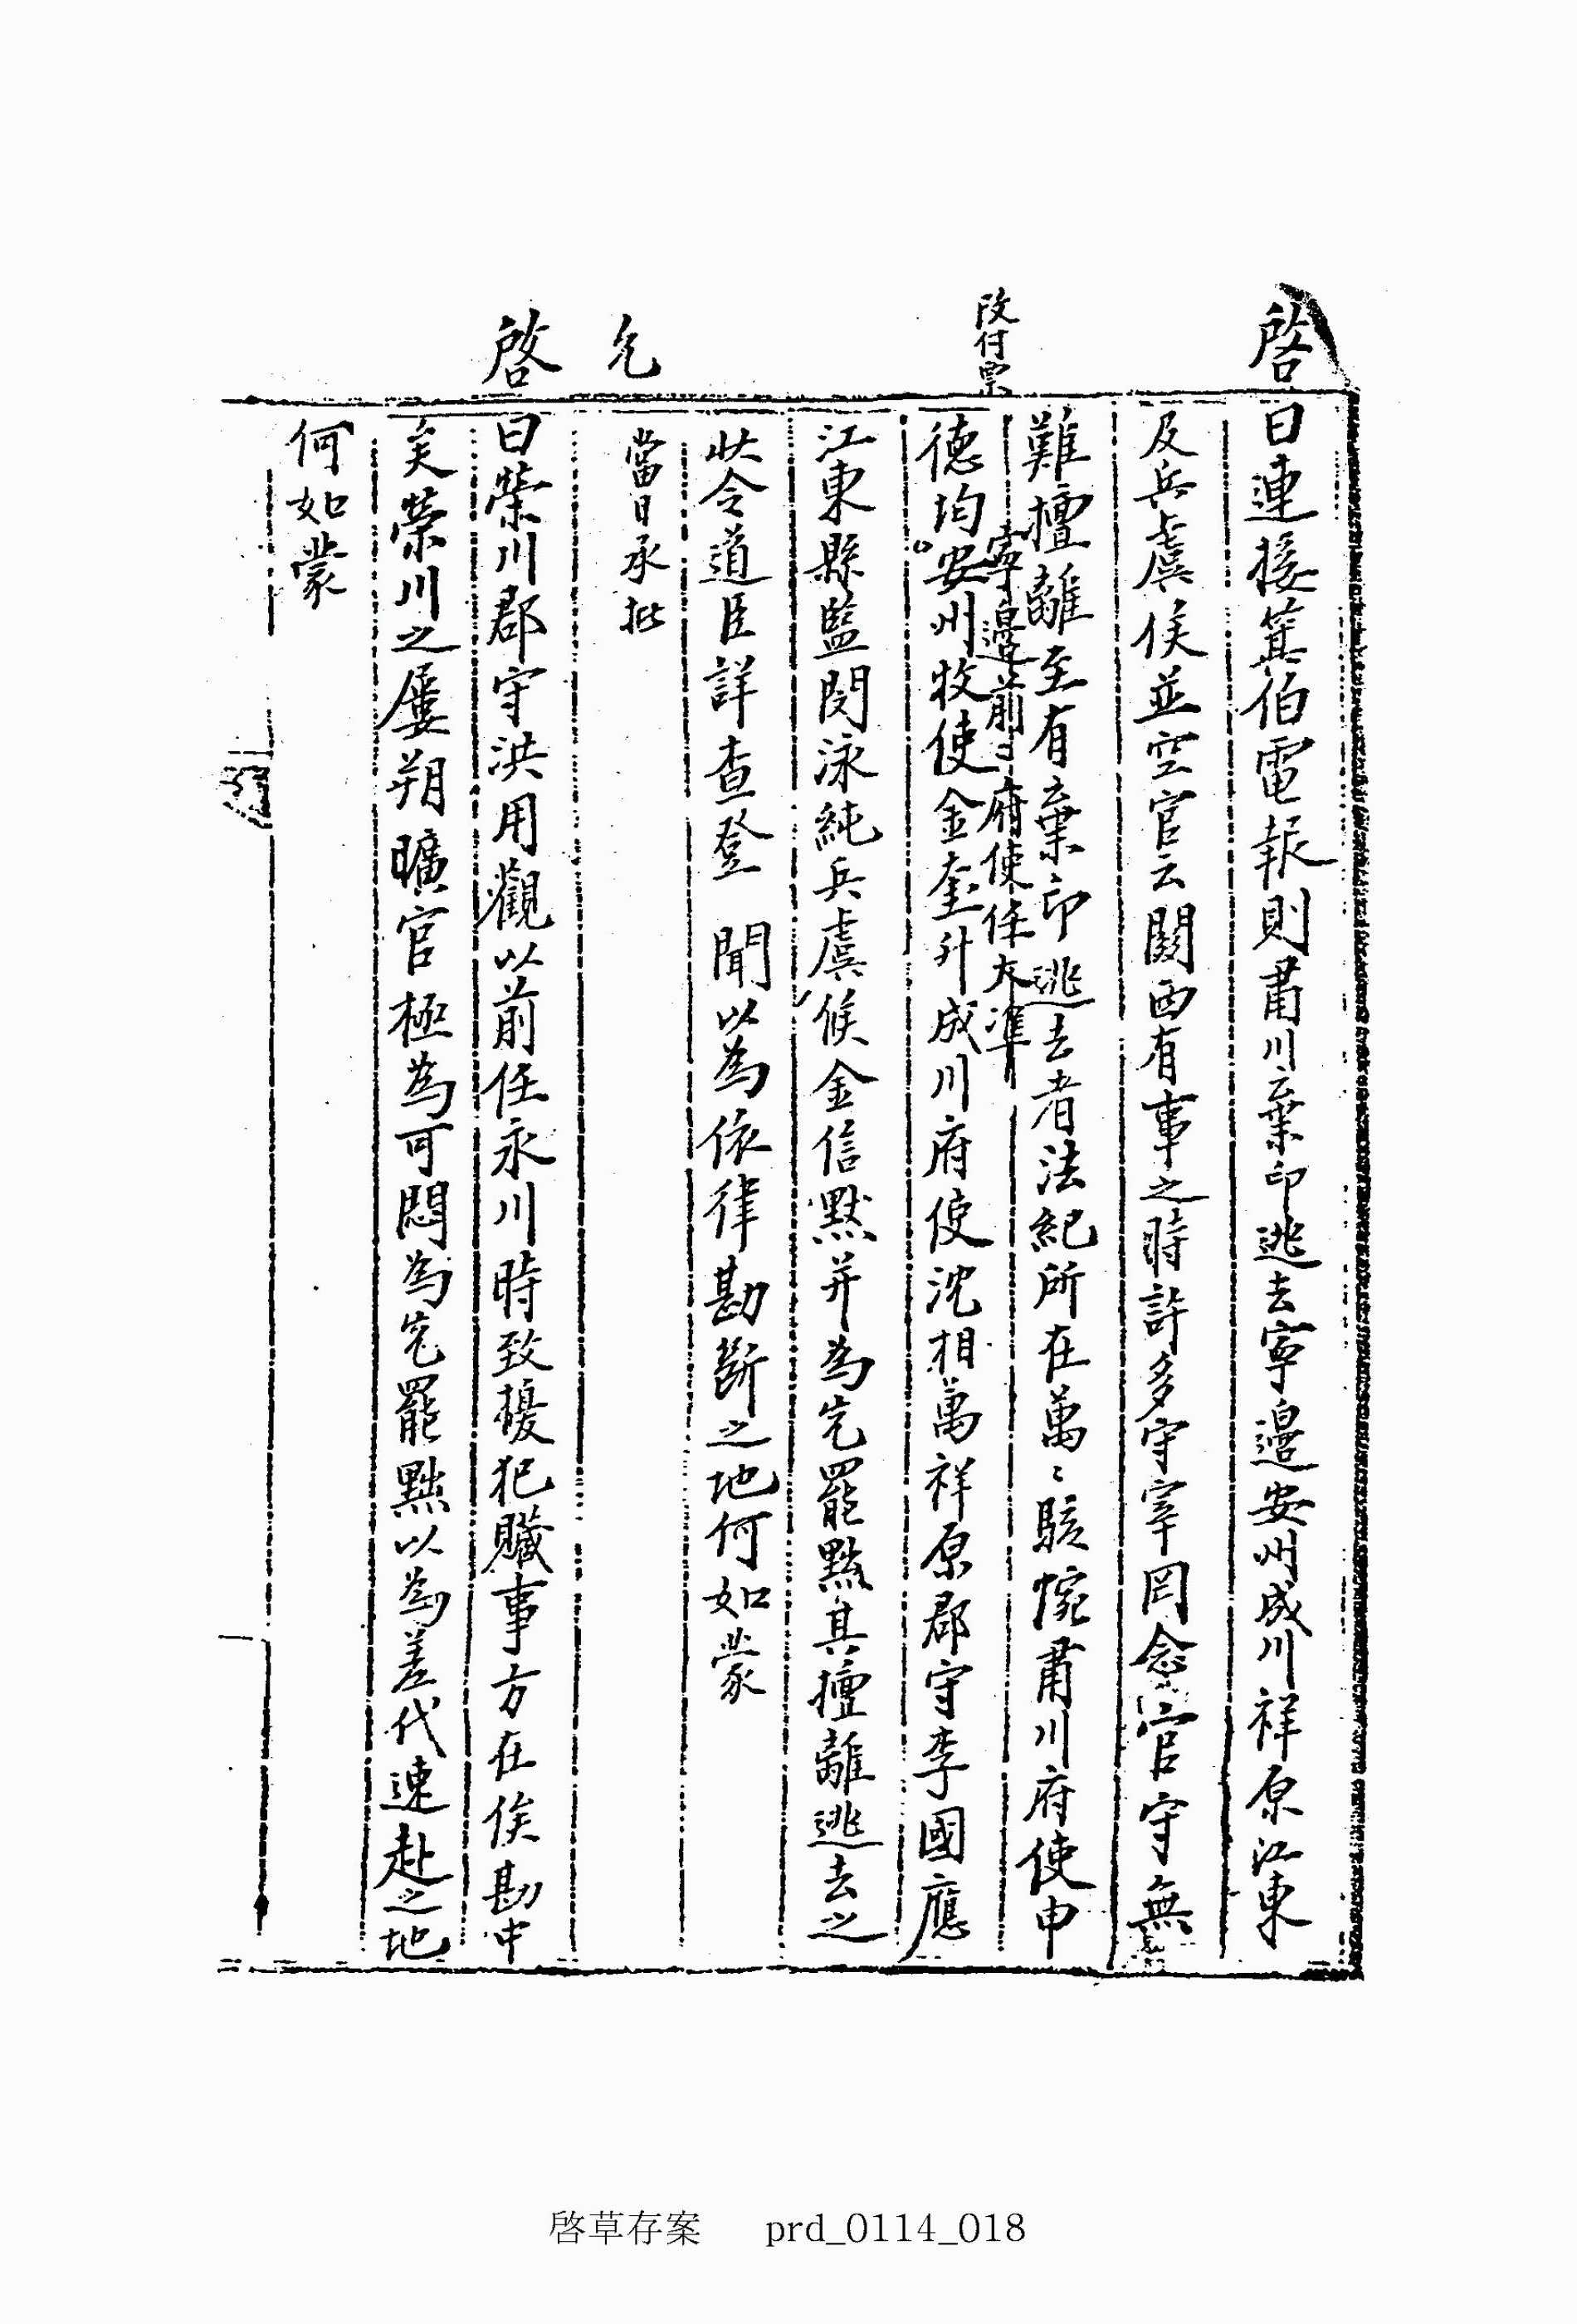 啓
曰連接箕伯電報則肅川棄印逃去寧邊安州成川祥原江東
及兵虞候並空官云關西有事之時許多守宰罔念官守無
難擅離至有棄印逃去者法紀所在萬〻駭惋肅川府使申
改付票
寧邊前府使任大準
德均安州牧使金奎升成川府使沈相萬祥原郡守李國應
江東縣監閔泳純兵虞候金信默并爲先罷黜其擅離逃去之
狀令道臣詳查登 聞以爲依律勘斷之地何如蒙
允
當日承批
啓
曰榮川郡守洪用觀以前任永川時致擾犯贓事方在俟勘中
矣榮川之屢朔曠官極爲可悶爲先罷黜以爲差代速赴之地
何如蒙
啓草存案 prd_0114_018